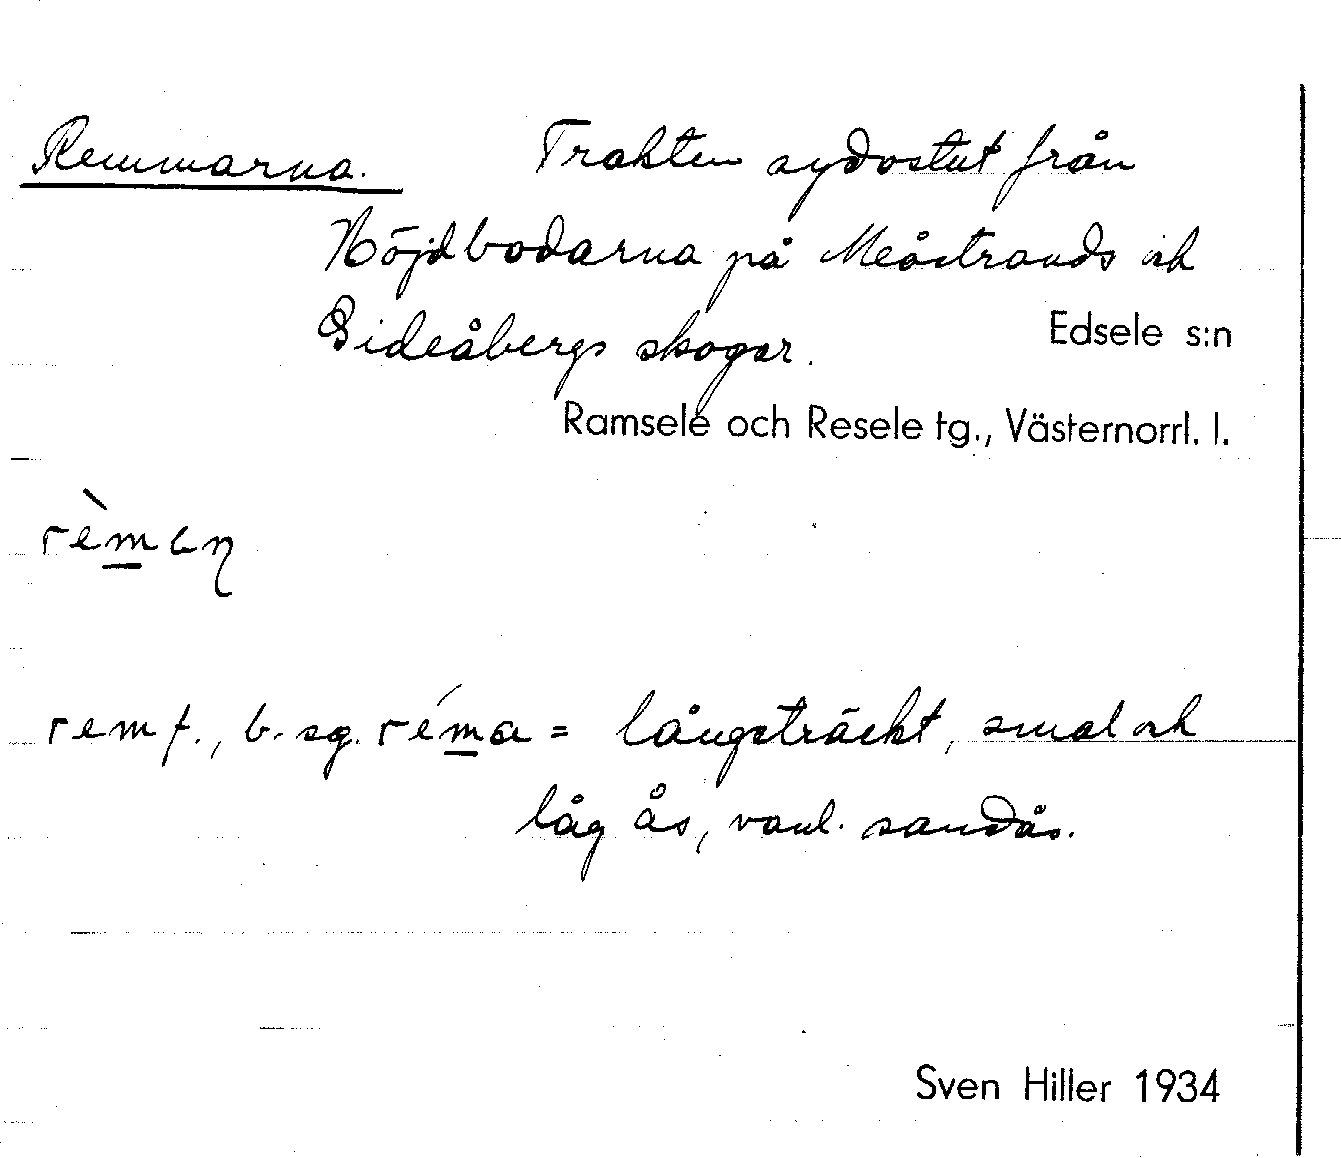 Remmarna. Trakten sydostut från
Höjdbodarna på Meåstrands och
Gideåbergs skogar.
Edsele s:n
Ramsele och Resele tg., Västernorrl. l.
rèmaɳ
rem f., b. sg. réma = långsträckt, smal och
låg ås, vanl. sandås.
Sven Hiller 1934